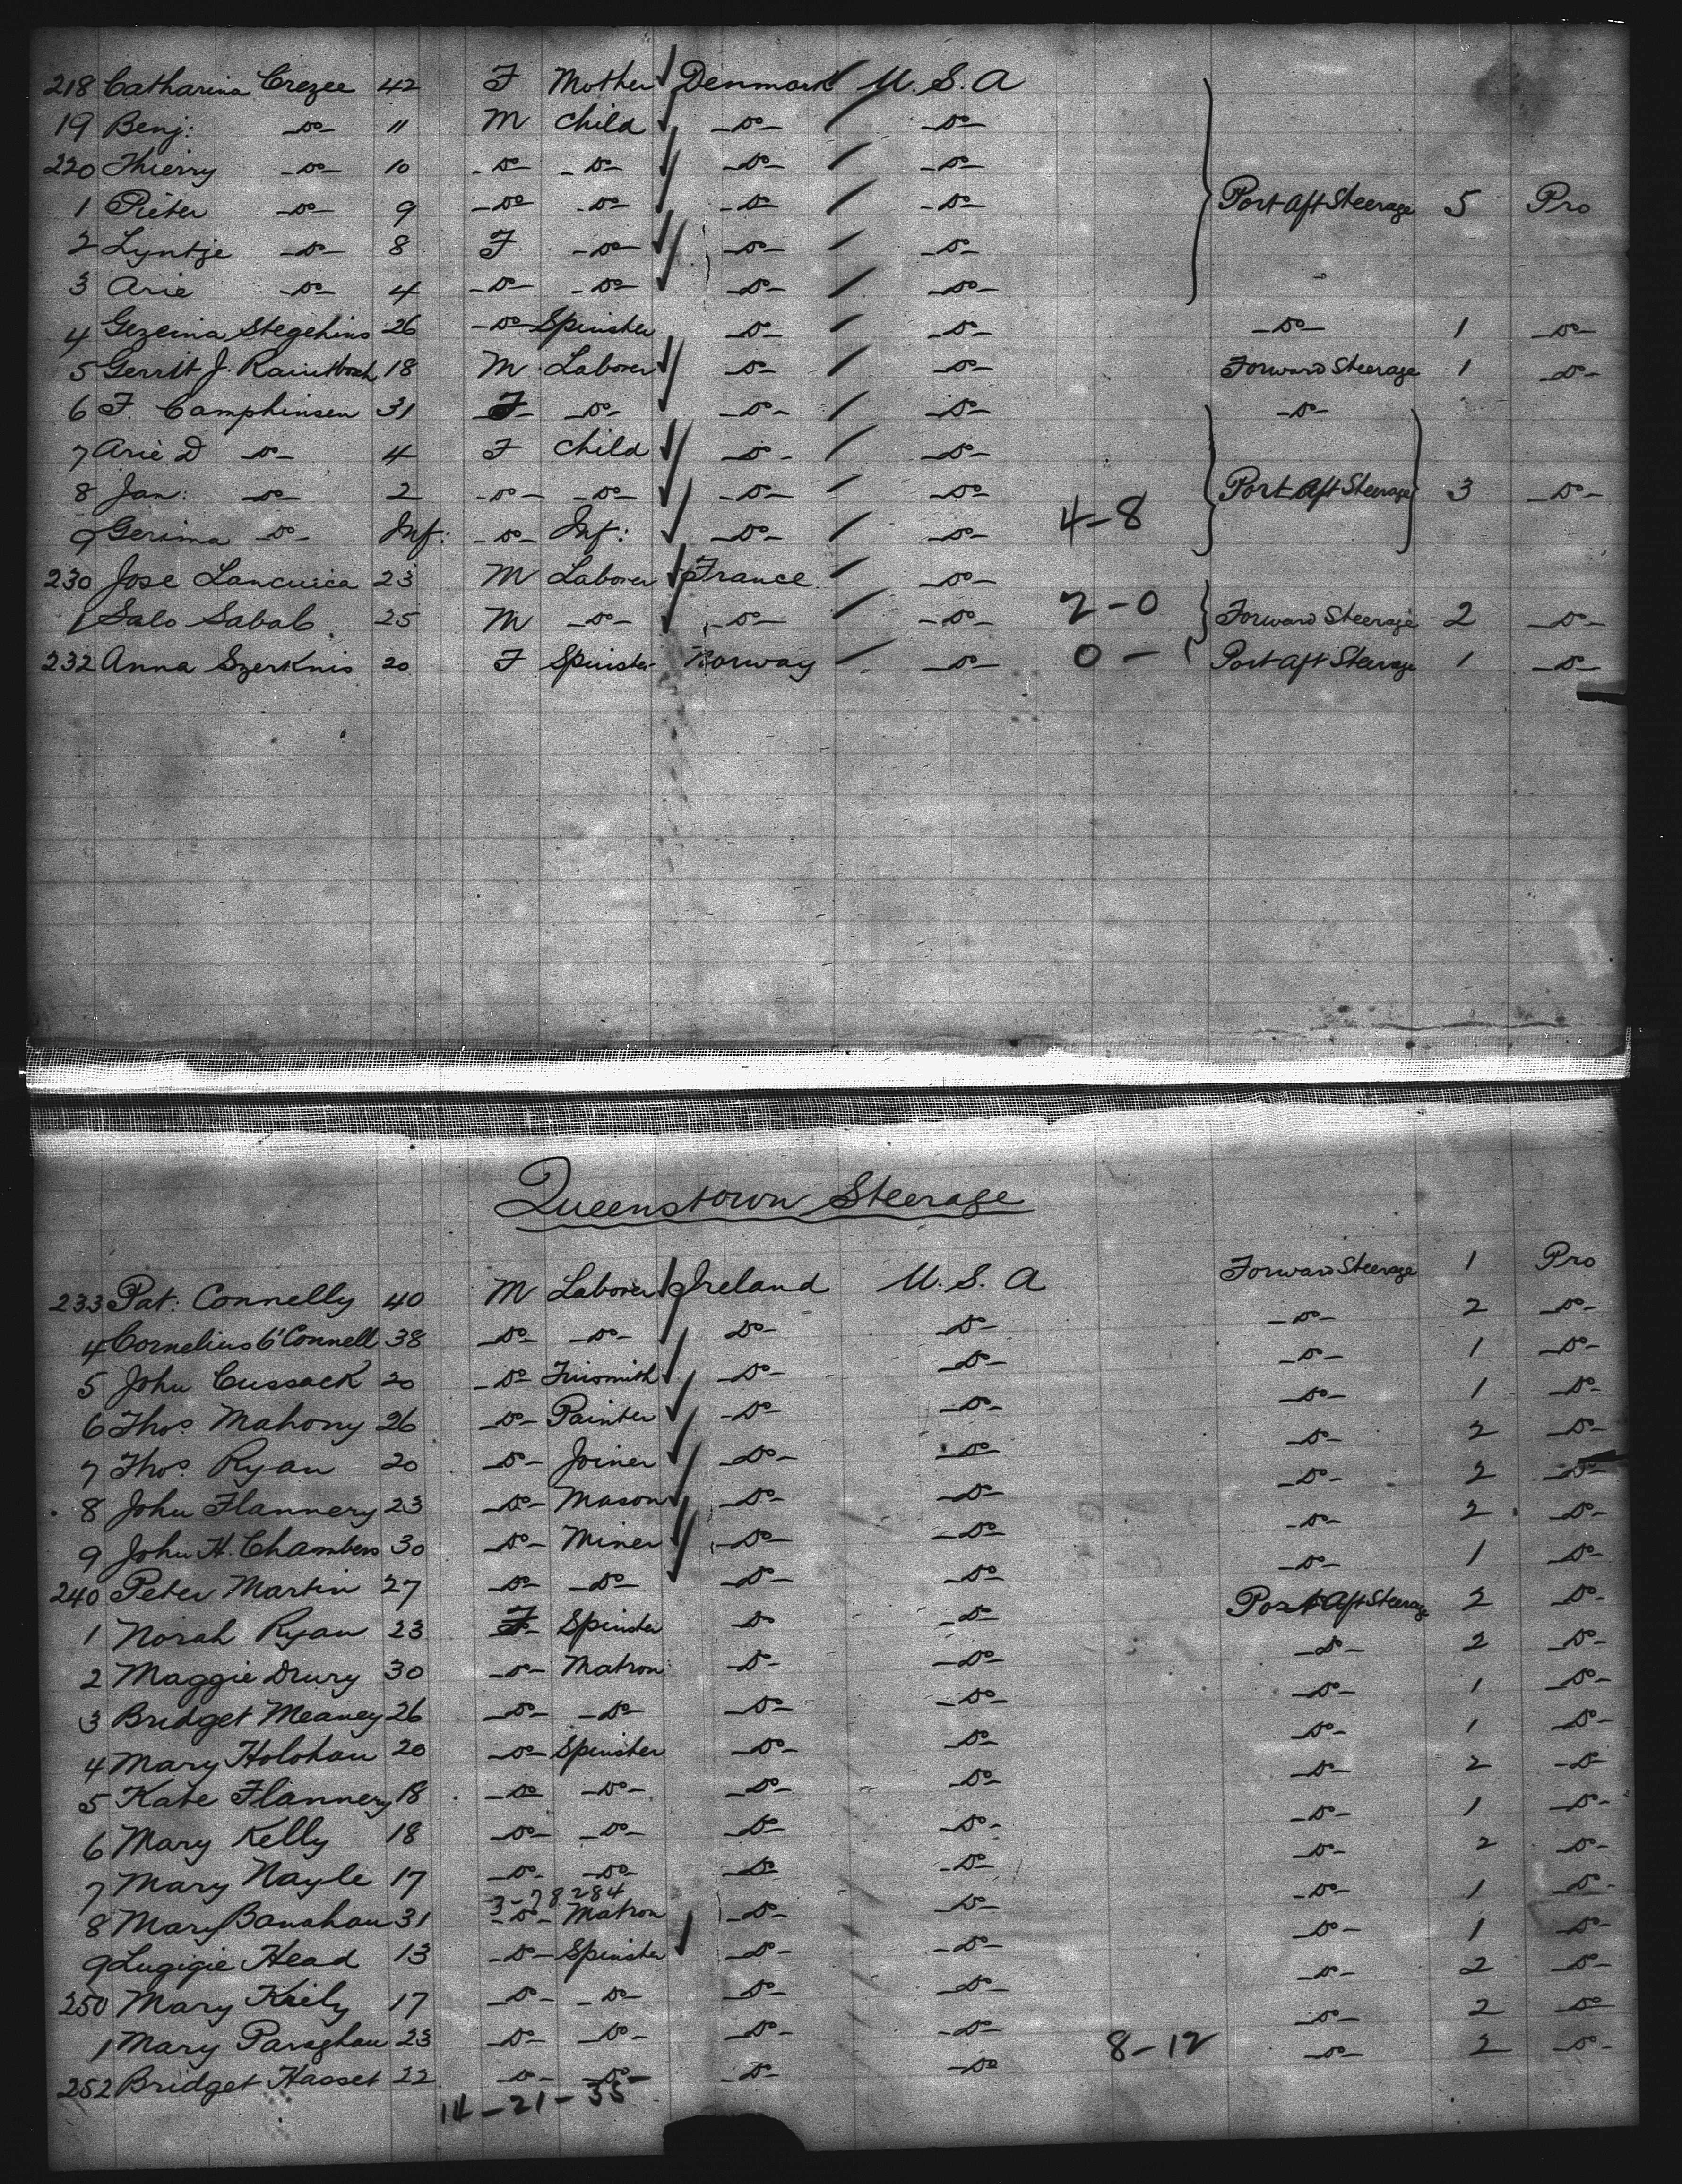 218 Catharina Crezee 42 F Mother Denmark U.S.A
19 Benj: -Do- 11 M child -Do- -Do-
220 Thierry -Do- 10 -Do- -Do- -Do- -Do-
1 Pieter -Do- 9 -Do- -Do- -Do- -Do- Port aft Steerage 5 Pro
2 Lyntje -Do- 8 F -Do- -Do- -Do-
3 Arie -Do- 4 -Do- -Do- -Do- -Do-
4 Gezeina Stegehins 26 -Do- Spinster -Do- -Do- -Do- 1 -Do-
5 Gerrit J. 18 M Laborer -Do- -Do- Forward Steerage 1 -Do-
6 F. Camphinsen 31 F -Do- -Do- -Do- -Do-
7 Arie D -Do- 4 F child -Do- -Do-
8 Jan: -Do- 2 -Do- -Do- -Do- -Do- Port Aft Steerage 3 -Do-
9 Gerima -Do- Inf: -Do- Inf: -Do- -Do- 4-8
230 Jose Lancuica 23 M Laborer France -Do-
1 Salo Sabab. 25 M -Do- -Do- -Do- 2-0 Forward Steerage 2 -Do-
232 Anna Szerknis 20 F Spinster Norway -Do- 0- Port aft Steerage 1 -Do-
Queenstown Steerage
233 Pat: Connelly 40 M Laborer Ireland U.S.A Forward Steerage 1 Pro
4 Cornelius O'Connell 38 -Do- -Do- Do- -Do- -Do- 2 -Do-
5 John Cussack 20 -Do- Tinsmith -Do- -Do- -Do- 1 -Do-
6 Thos. Mahony 26 -Do- Painter -Do- -Do- -Do- 1 -Do-
7 Thos. Ryan 20 -Do- Joiner -Do- -Do- -Do- 2 -Do-
8 John Flannery 23 -Do- Mason -Do- -Do- -Do- 2 -Do-
9 John H. Chambers 30 -Do- Miner -Do- -Do- -Do- 2 -Do-
240 Peter Martin 27 -Do- -Do- -Do- -Do- -Do- 1 -Do-
1 Norah Ryan 23 F- Spinster Do -Do- Port Aft Steerage 2 -Do-
2 Maggie Drury 30 -Do- Matron -Do- -Do- -Do- 2 -Do-
3 Bridget Meaney 26 -Do- -Do- -Do- -Do- -Do- 1 -Do-
4 Mary Holohan 20 -Do- Spinster -Do- -Do- -Do- 1 -Do-
5 Kate Flannery 18 -Do- -Do- -Do- -Do- -Do- 2 -Do-
6 Mary Kelly 18 -Do- -Do- -Do- -Do- -Do- 1 -Do-
7 Mary Nayle 17 -Do- -Do- -Do- -Do- -Do- 2 -Do-
3-78284
8 Mary Banahan 31 -Do- Matron -Do- -Do- -Do- 1 -Do-
9 Lugigie Head 13 -Do- Spinster -Do- -Do- -Do- 1 -Do-
250 Mary Kiely 17 -Do- -Do- -Do- -Do- -Do- 2 -Do-
1 Mary Parsghan 23 -Do- -Do- -Do- -Do- -Do- 2 -Do-
252 Bridget Hasset 22 -Do- -Do- -Do- -Do- 8-12 -Do- 2 -Do-
14-21-35